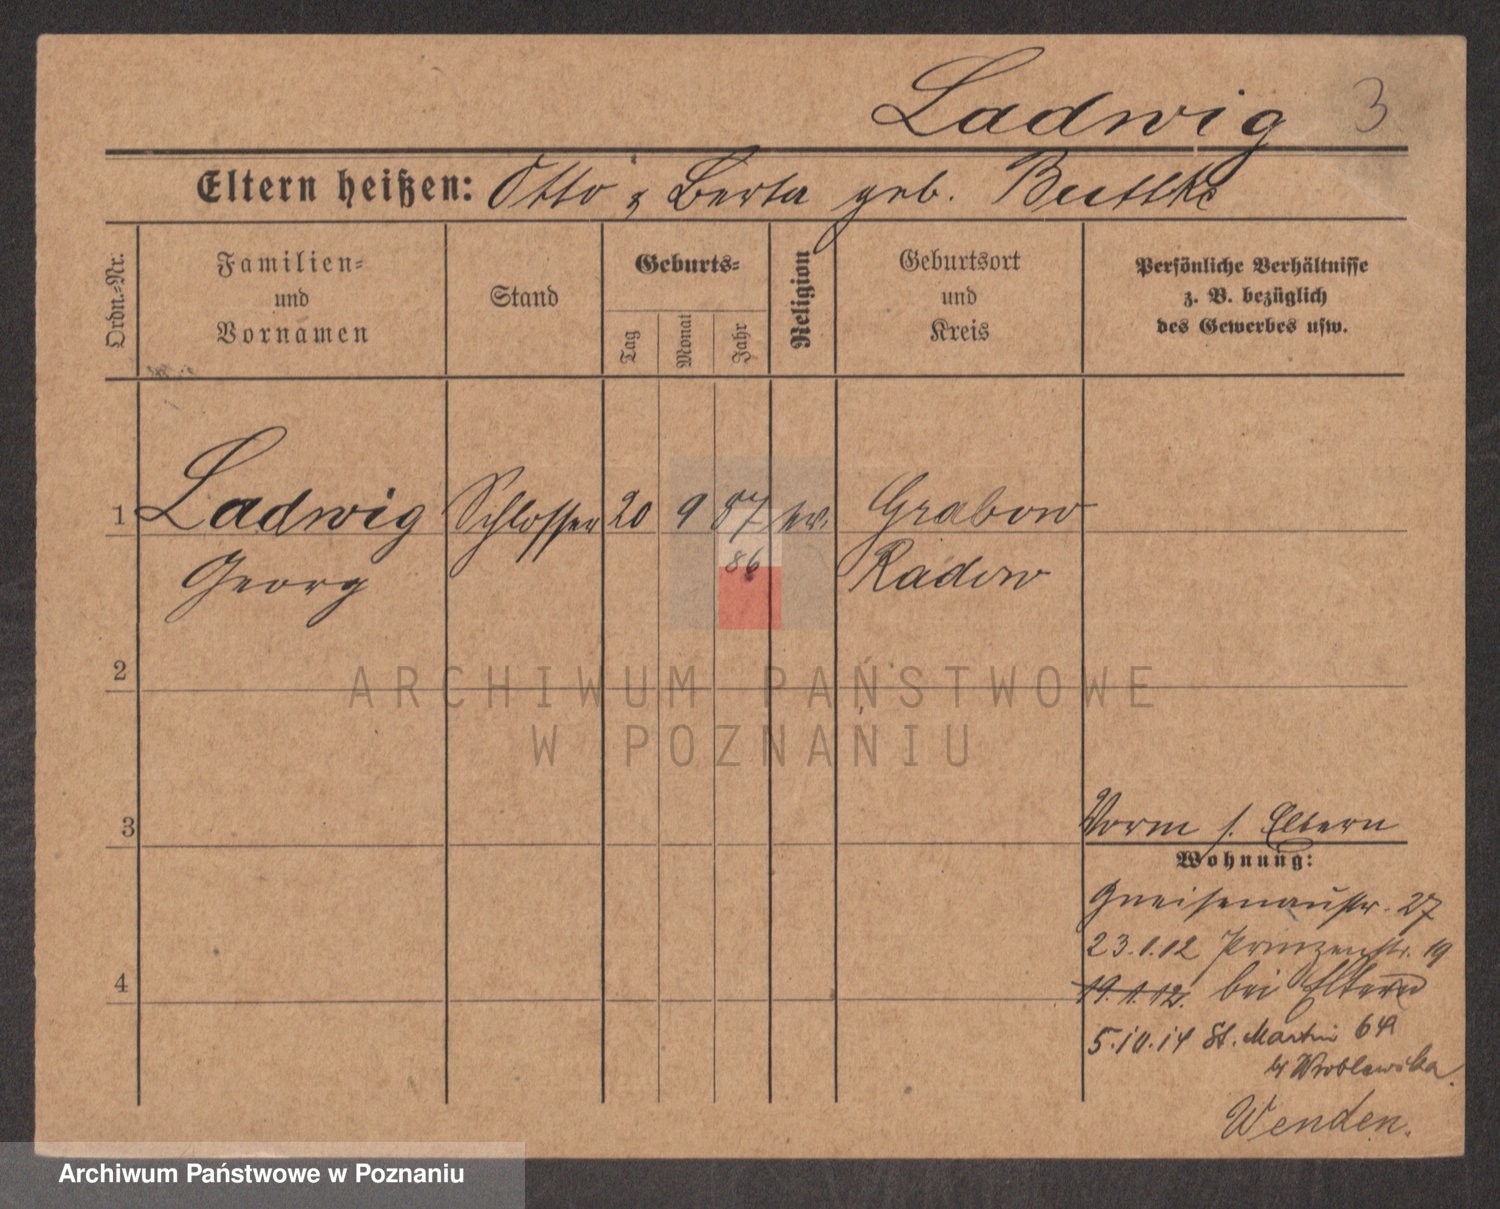 Ladwig 3
Eltern heißen: Otto & Berta geb.
Ordn.=Nr.
Familien=
und
Vornamen
Stand
Geburts=
Tag
Monat
Jahr
Religion
Geburtsort
und
Kreis
Persönliche Verhältnisse
z. B. bezüglich
des Gewerbes usw.
1 Ladwig Schlosser 20 9 87 ev. Grabow
Georg 86 Radow
2
ARCHIWUM PAŃSTWOWE
W POZNANIU
3
Vorm s. Eltern
Wohnung:
Gneisenaustr. 27
23.1.12 Prinzenstr. 19
4
19.1.12. bei Eltern
5.10.14 St. Martin 64
b/ Wroblewska
Wenden.
Archiwum Państwowe w Poznaniu